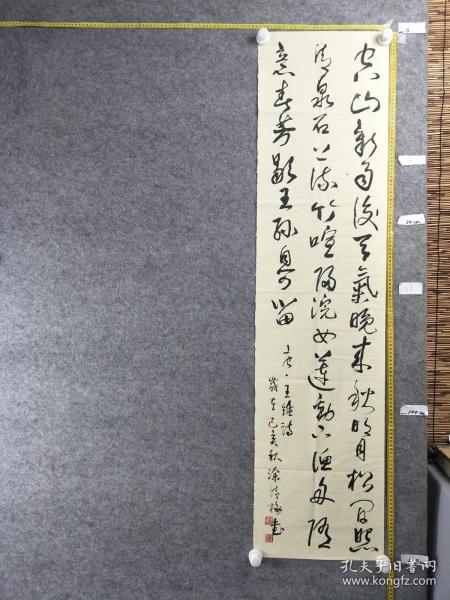 空山新雨後天氣晚来秋明月松间照
清泉石上流竹喧歸浣女蓮動下漁舟随
意春芳歇王孫自可留
唐·王維詩
歲在己亥秋
50cm
100cm
孔夫子旧书网
www.kongfz.com